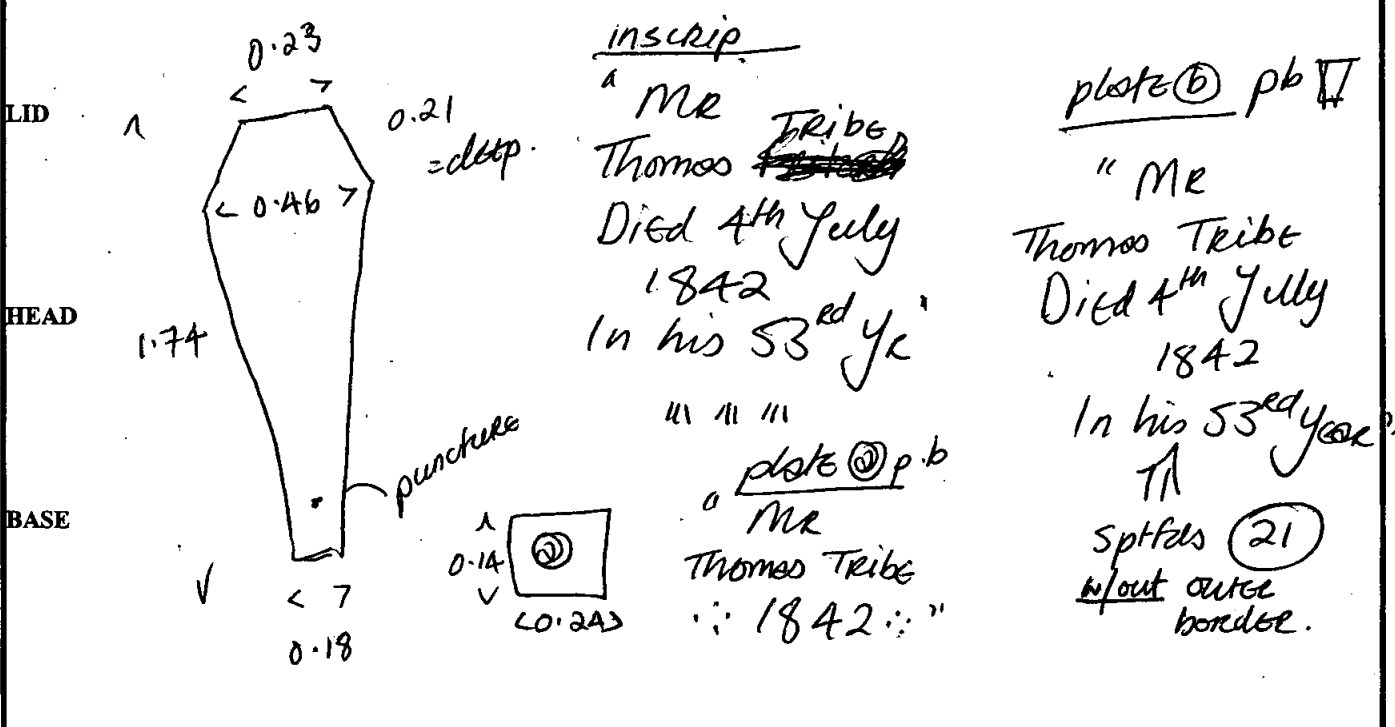 LID
HEAD
BASE
0.23
0.21
=deep.
< 0.46 >
1.74
puncture
< >
0.18
inscrip
" MR
Thomas Tribe
Died 4th July
1842
In his 53rd Yr "
plate ⓐ p.b
" MR
Thomas Tribe
∴ 1842 ∴ "
0.14
ⓐ
<0.24>
plate ⓑ pb
" MR
Thomas Tribe
Died 4th July
1842
In his 53rd Year"
Sptfds 21
w/out outer
border.